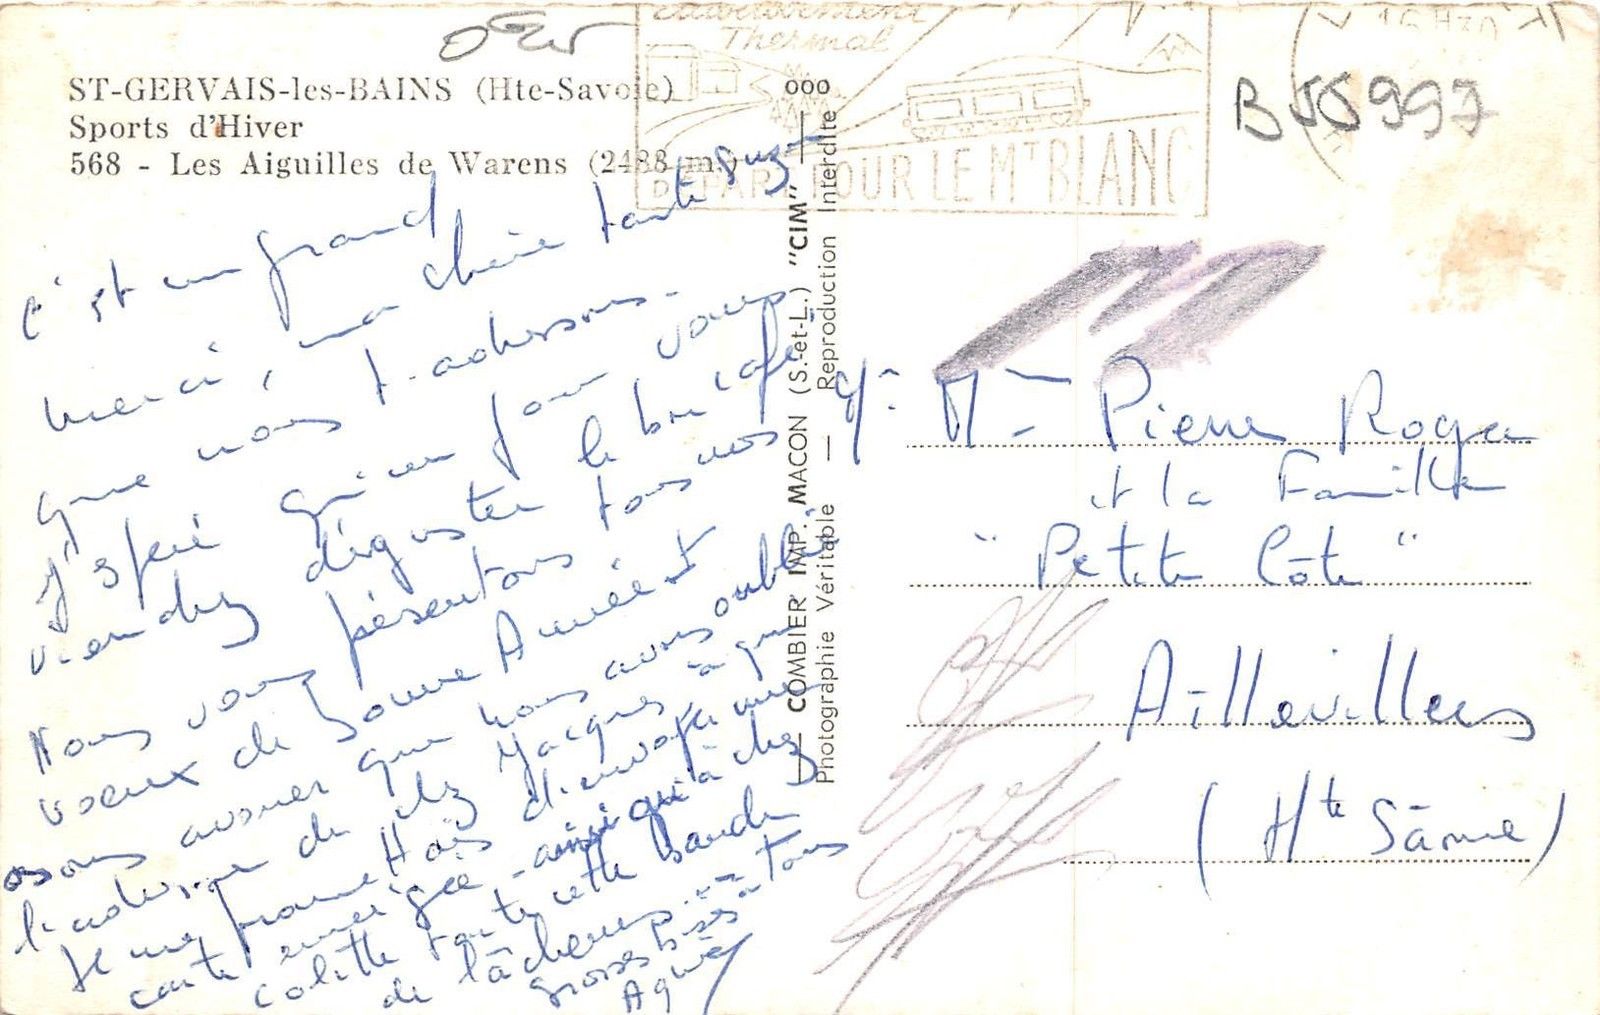 ST-GERVAIS-les-BAINS (Hte-Savoie)
Sports d'Hiver
568 - Les Aiguilles de Warens (2488 m.)
Thermal
DÉPART POUR LE MT BLANC
16H30
B55997
000
— COMBIER IMP. MACON (S.-et-L.) "CIM" —
Photographie Véritable — Reproduction Interdite
C'est un grand
merci, ma chère tante Suz
que nous t'adressons.
J'espère qu'un jour vous
viendrez déguster le bon café
Nous vous présentons tous nos
voeux de Bonne Année et
osons avouer que nous avons oublié
l'adresse de chez Jacques à qui
Je me promettais d'envoyer une
carte enneigée - ainsi qu'à chez
Colette toute cette bande
de lâcheurs...
grosses bises à tous
Agnès
Mr. Mme Pierre Roger
et la Famille
"Petite Côte"
Aillevillers
(Hte Sâone)